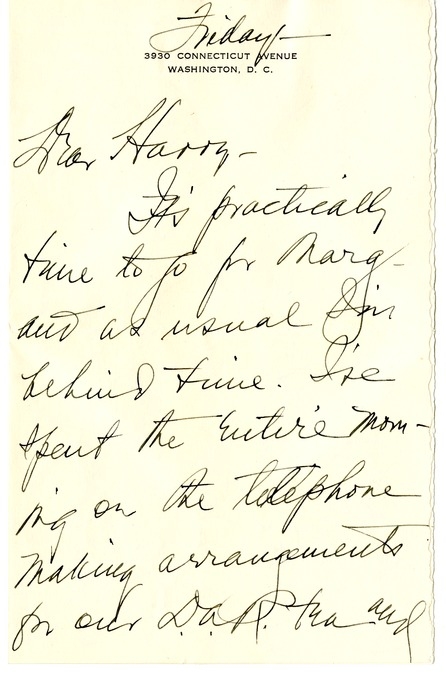 Friday -
3930 CONNECTICUT AVENUE
WASHINGTON, D. C.
Dear Harry -
It's practically
time to go for Marg -
and as usual I'm
behind time. I've
spent the entire morn-
ing on the telephone
making arrangements
for our D.A.R. tea and